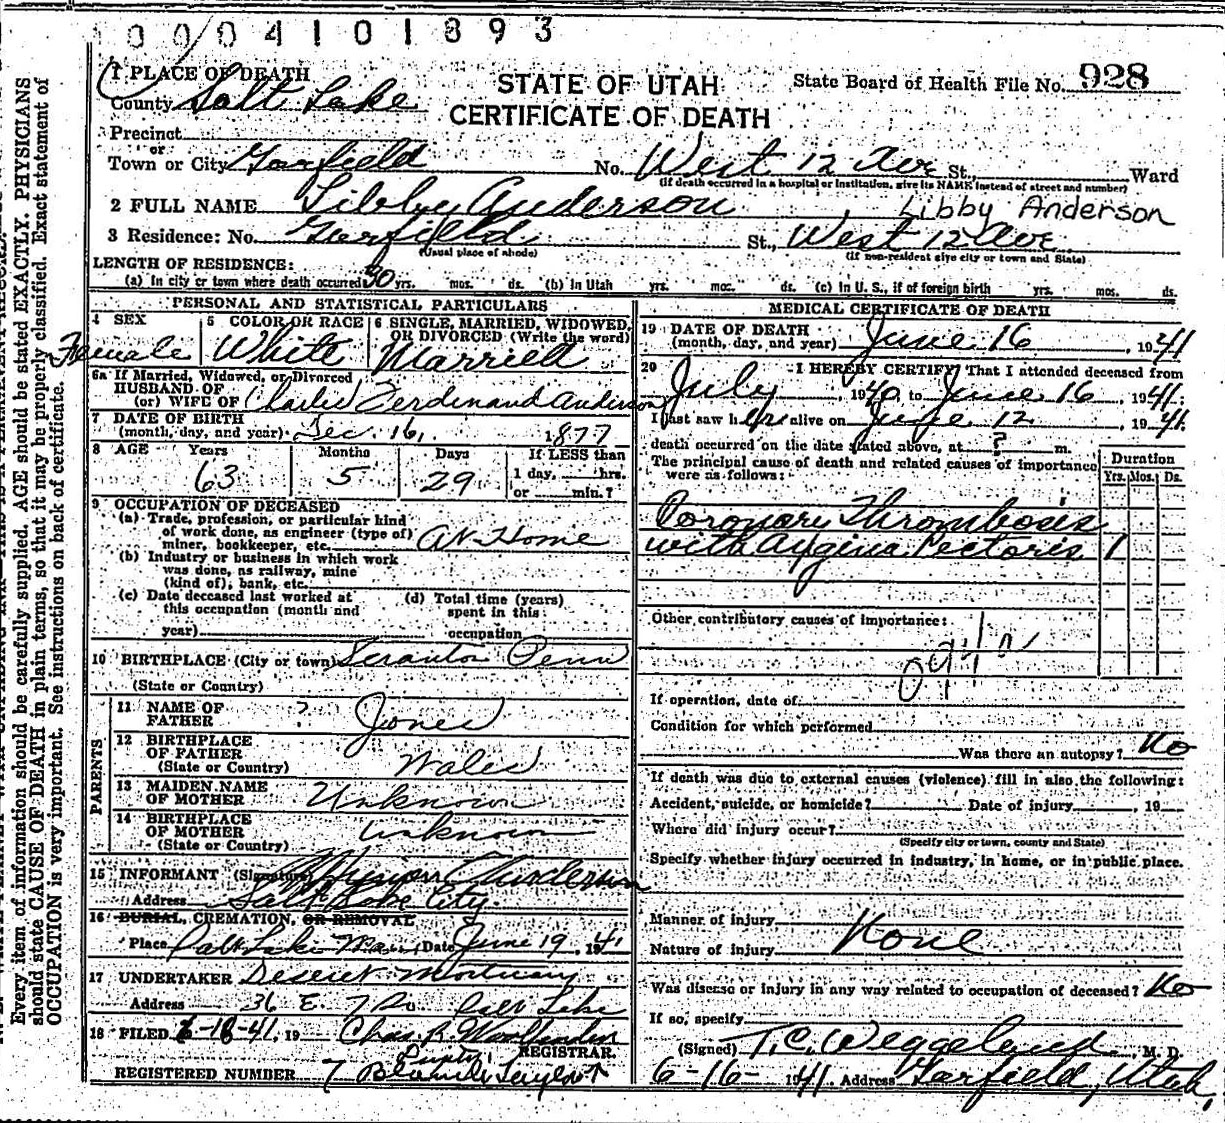 0004101893
1 PLACE OF DEATH
STATE OF UTAH
State Board of Health File No. 928
County Salt Lake
CERTIFICATE OF DEATH
Precinct
or
Town or City Garfield No. West 12 Ave St., Ward
(If death occurred in a hospital or institution, give its NAME instead of street and number)
2 FULL NAME Libby Anderson, Libby Anderson
3 Residence: No. Garfield St., West 12 Ave
(Usual place of abode) (If non-resident give city or town and State)
LENGTH OF RESIDENCE:
(a) In city or town where death occurred 30 yrs. mos. ds. (b) In Utah yrs. mos. ds. (c) In U. S., if of foreign birth yrs. mos. ds.
PERSONAL AND STATISTICAL PARTICULARS
4 SEX Female
5 COLOR OR RACE White
6 SINGLE, MARRIED, WIDOWED, OR DIVORCED (Write the word) Married
6a If Married, Widowed, or Divorced
HUSBAND OF
(or) WIFE OF Charlie Ferdinand Anderson
7 DATE OF BIRTH
(month, day, and year) Dec. 16, 1877
8 AGE Years Months Days If LESS than
63 5 29 1 day, hrs.
or min.?
9 OCCUPATION OF DECEASED
(a) Trade, profession, or particular kind
of work done, as engineer (type of)
miner, bookkeeper, etc. At Home
(b) Industry or business in which work
was done, as railway, mine
(kind of), bank, etc.
(c) Date deceased last worked at
this occupation (month and
year)
(d) Total time (years)
spent in this
occupation
10 BIRTHPLACE (City or town) Scranton Penn
(State or Country)
PARENTS
11 NAME OF
FATHER ? Jones
12 BIRTHPLACE
OF FATHER
(State or Country) Wales
13 MAIDEN NAME
OF MOTHER Unknown
14 BIRTHPLACE
OF MOTHER
(State or Country) unknown
15 INFORMANT (Signature) Anderson
Address Salt Lake City.
16 BURIAL, CREMATION, OR REMOVAL
Place Salt Lake Date June 19, 1941
17 UNDERTAKER Deseret Mortuary
Address 36 E. 7 So Salt Lake
18 FILED 6-18-41, 19 Chas. R.
REGISTRAR.
REGISTERED NUMBER 7 Taylor
MEDICAL CERTIFICATE OF DEATH
19 DATE OF DEATH
(month, day, and year) June 16, 1941
20 I HEREBY CERTIFY That I attended deceased from
July, 1940, to June 16, 1941;
I last saw her alive on June 12, 1941.
death occurred on the date stated above, at ? m.
The principal cause of death and related causes of importance
were as follows:
Duration
Yrs. Mos. Ds.
Coronary Thrombosis
with Angina Pectoris 1
Other contributory causes of importance:
If operation, date of
Condition for which performed
Was there an autopsy? No
If death was due to external causes (violence) fill in also the following:
Accident, suicide, or homicide? Date of injury, 19
Where did injury occur?
(Specify city or town, county and State)
Specify whether injury occurred in industry, in home, or in public place.
Manner of injury
Nature of injury None
Was disease or injury in any way related to occupation of deceased? No
If so, specify
(Signed) T. C. Weggeland, M. D.
6-16-1941 Address Garfield, Utah,
Every item of information should be carefully supplied. AGE should be stated EXACTLY. PHYSICIANS
should state CAUSE OF DEATH in plain terms, so that it may be properly classified. Exact statement of
OCCUPATION is very important. See instructions on back of certificate.